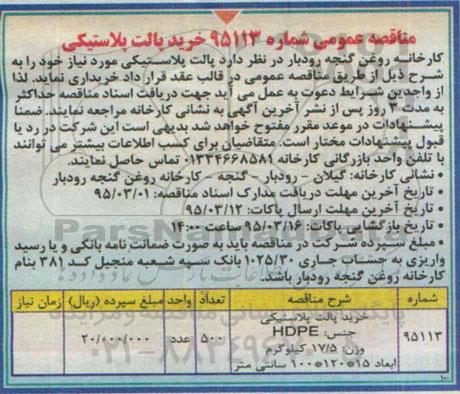 مناقصه عمومی شماره ۹۵۱۱۳ خرید پالت پلاستیکی
کارخانه روغن گنجه رودبار در نظر دارد پالت پلاستیکی مورد نیاز خود را به
شرح ذیل از طریق مناقصه عمومی در قالب عقد قرار داد خریداری نماید. لذا
از واجدین شرایط دعوت به عمل می آید جهت دریافت اسناد مناقصه حداکثر
به مدت ۳ روز پس از نشر آخرین آگهی به نشانی کارخانه مراجعه نمایند. ضمنا
پیشنهادات در موعد مقرر مفتوح خواهد شد بدیهی است این شرکت در رد یا
قبول پیشنهادات مختار است. متقاضیان برای کسب اطلاعات بیشتر می توانند
با تلفن واحد بازرگانی کارخانه ۰۱۳۳۴۶۶۸۵۸۱ تماس حاصل نمایند.
• نشانی کارخانه: گیلان - رودبار - گنجه - کارخانه روغن گنجه رودبار
• تاریخ آخرین مهلت دریافت مدارک اسناد مناقصه: ۹۵/۰۳/۰۱
• تاریخ آخرین مهلت ارسال پاکات: ۹۵/۰۳/۱۲
• تاریخ بازگشایی پاکات: ۹۵/۰۳/۱۶ ساعت ۱۴:۰۰
• مبلغ سپرده شرکت در مناقصه باید به صورت ضمانت نامه بانکی و یا رسید
واریزی به حساب جاری ۱۰۲۵/۳۰ بانک سپه شعبه منجیل کد ۳۸۱ بنام
کارخانه روغن گنجه رودبار باشد.
شماره شرح مناقصه تعداد واحد مبلغ سپرده (ریال) زمان نیاز
۹۵۱۱۳ خرید پالت پلاستیکی ۵۰۰ عدد ۲۰/۰۰۰/۰۰۰
جنس: HDPE
وزن: ۱۷/۵ کیلوگرم
ابعاد ۱۵*۱۲۰*۱۰۰ سانتی متر
ParsNamadData